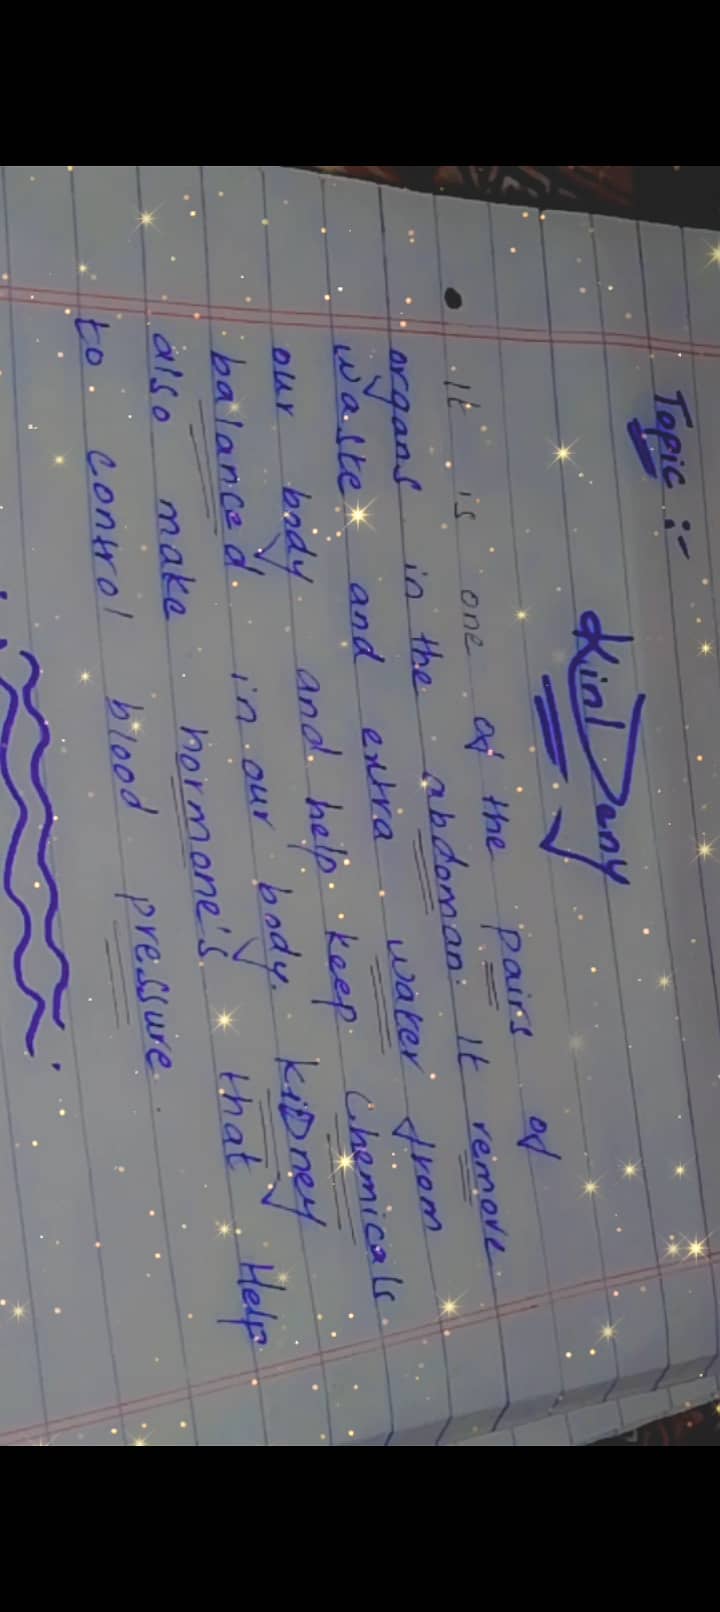 Topic :-
KinlDeny
It is one of the pairs of
organs in the abdoman. It remove
waske and extra waker from
our body and help keep Chemicals
balanced in our body. kiDney
also make hormone's that Help
to control blood pressure.